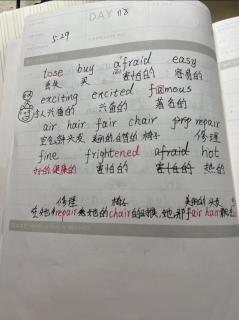 DAY 118
5.29
tose buy afraid easy
丢失 买 害怕的 容易的
exciting excited famous
令人兴奋的 兴奋的 著名的
air hair fair chair repair
空气 头发 美丽的 椅子 修理
fine frightened afraid hot
好的,健康的 害怕的 害怕的 热的
修理 椅子 美丽的 头发
在她repair她的chair的时候,她那fair hair